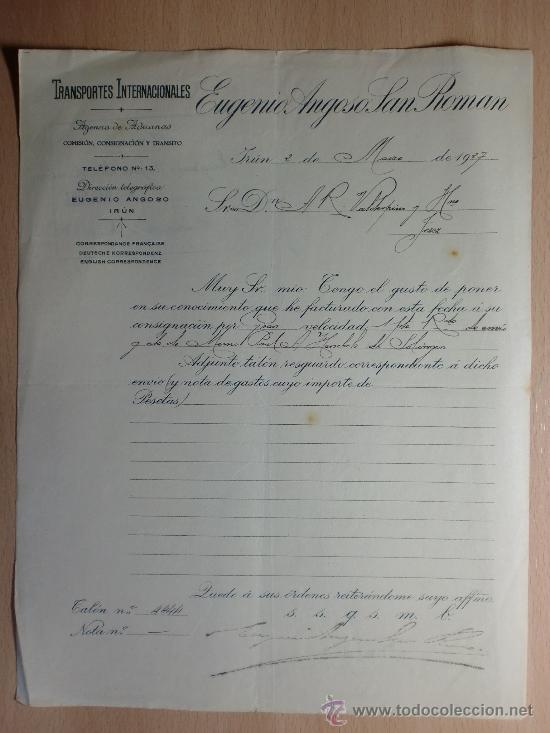 TRANSPORTES INTERNACIONALES
Agencia de Aduanas
COMISIÓN, CONSIGNACIÓN Y TRÁNSITO
TELÉFONO Nº: 13.
Dirección telegráfica
EUGENIO ANGOSO
IRÚN
CORRESPONDANCE FRANÇAISE
DEUTSCHE KORRESPONDENZ
ENGLISH CORRESPONDENCE
Eugenio Angoso San Roman
Irún 2 de Marzo de 1927
Sres. Dn A R Valdespino y Hno
Jerez
Muy Sr. mio: Tengo el gusto de poner
en su conocimiento que he facturado con esta fecha á su
consignación por Gran velocidad, 1
Adjunto talón resguardo correspondiente á dicho
envío (y nota de gastos cuyo importe de
Pesetas)
Quedo á sus órdenes reiterándome suyo affmo.
s. s. q. s. m. b.
Talón nº 4244
Nota nº —
todocoleccion
www.todocoleccion.net